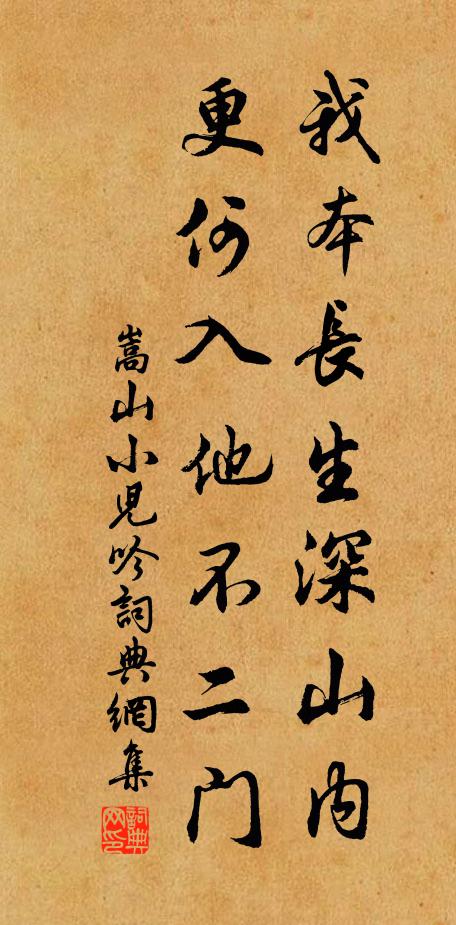 我本長生深山內
更何入他不二門
嵩山小兒吟詞典網集
詞典网印